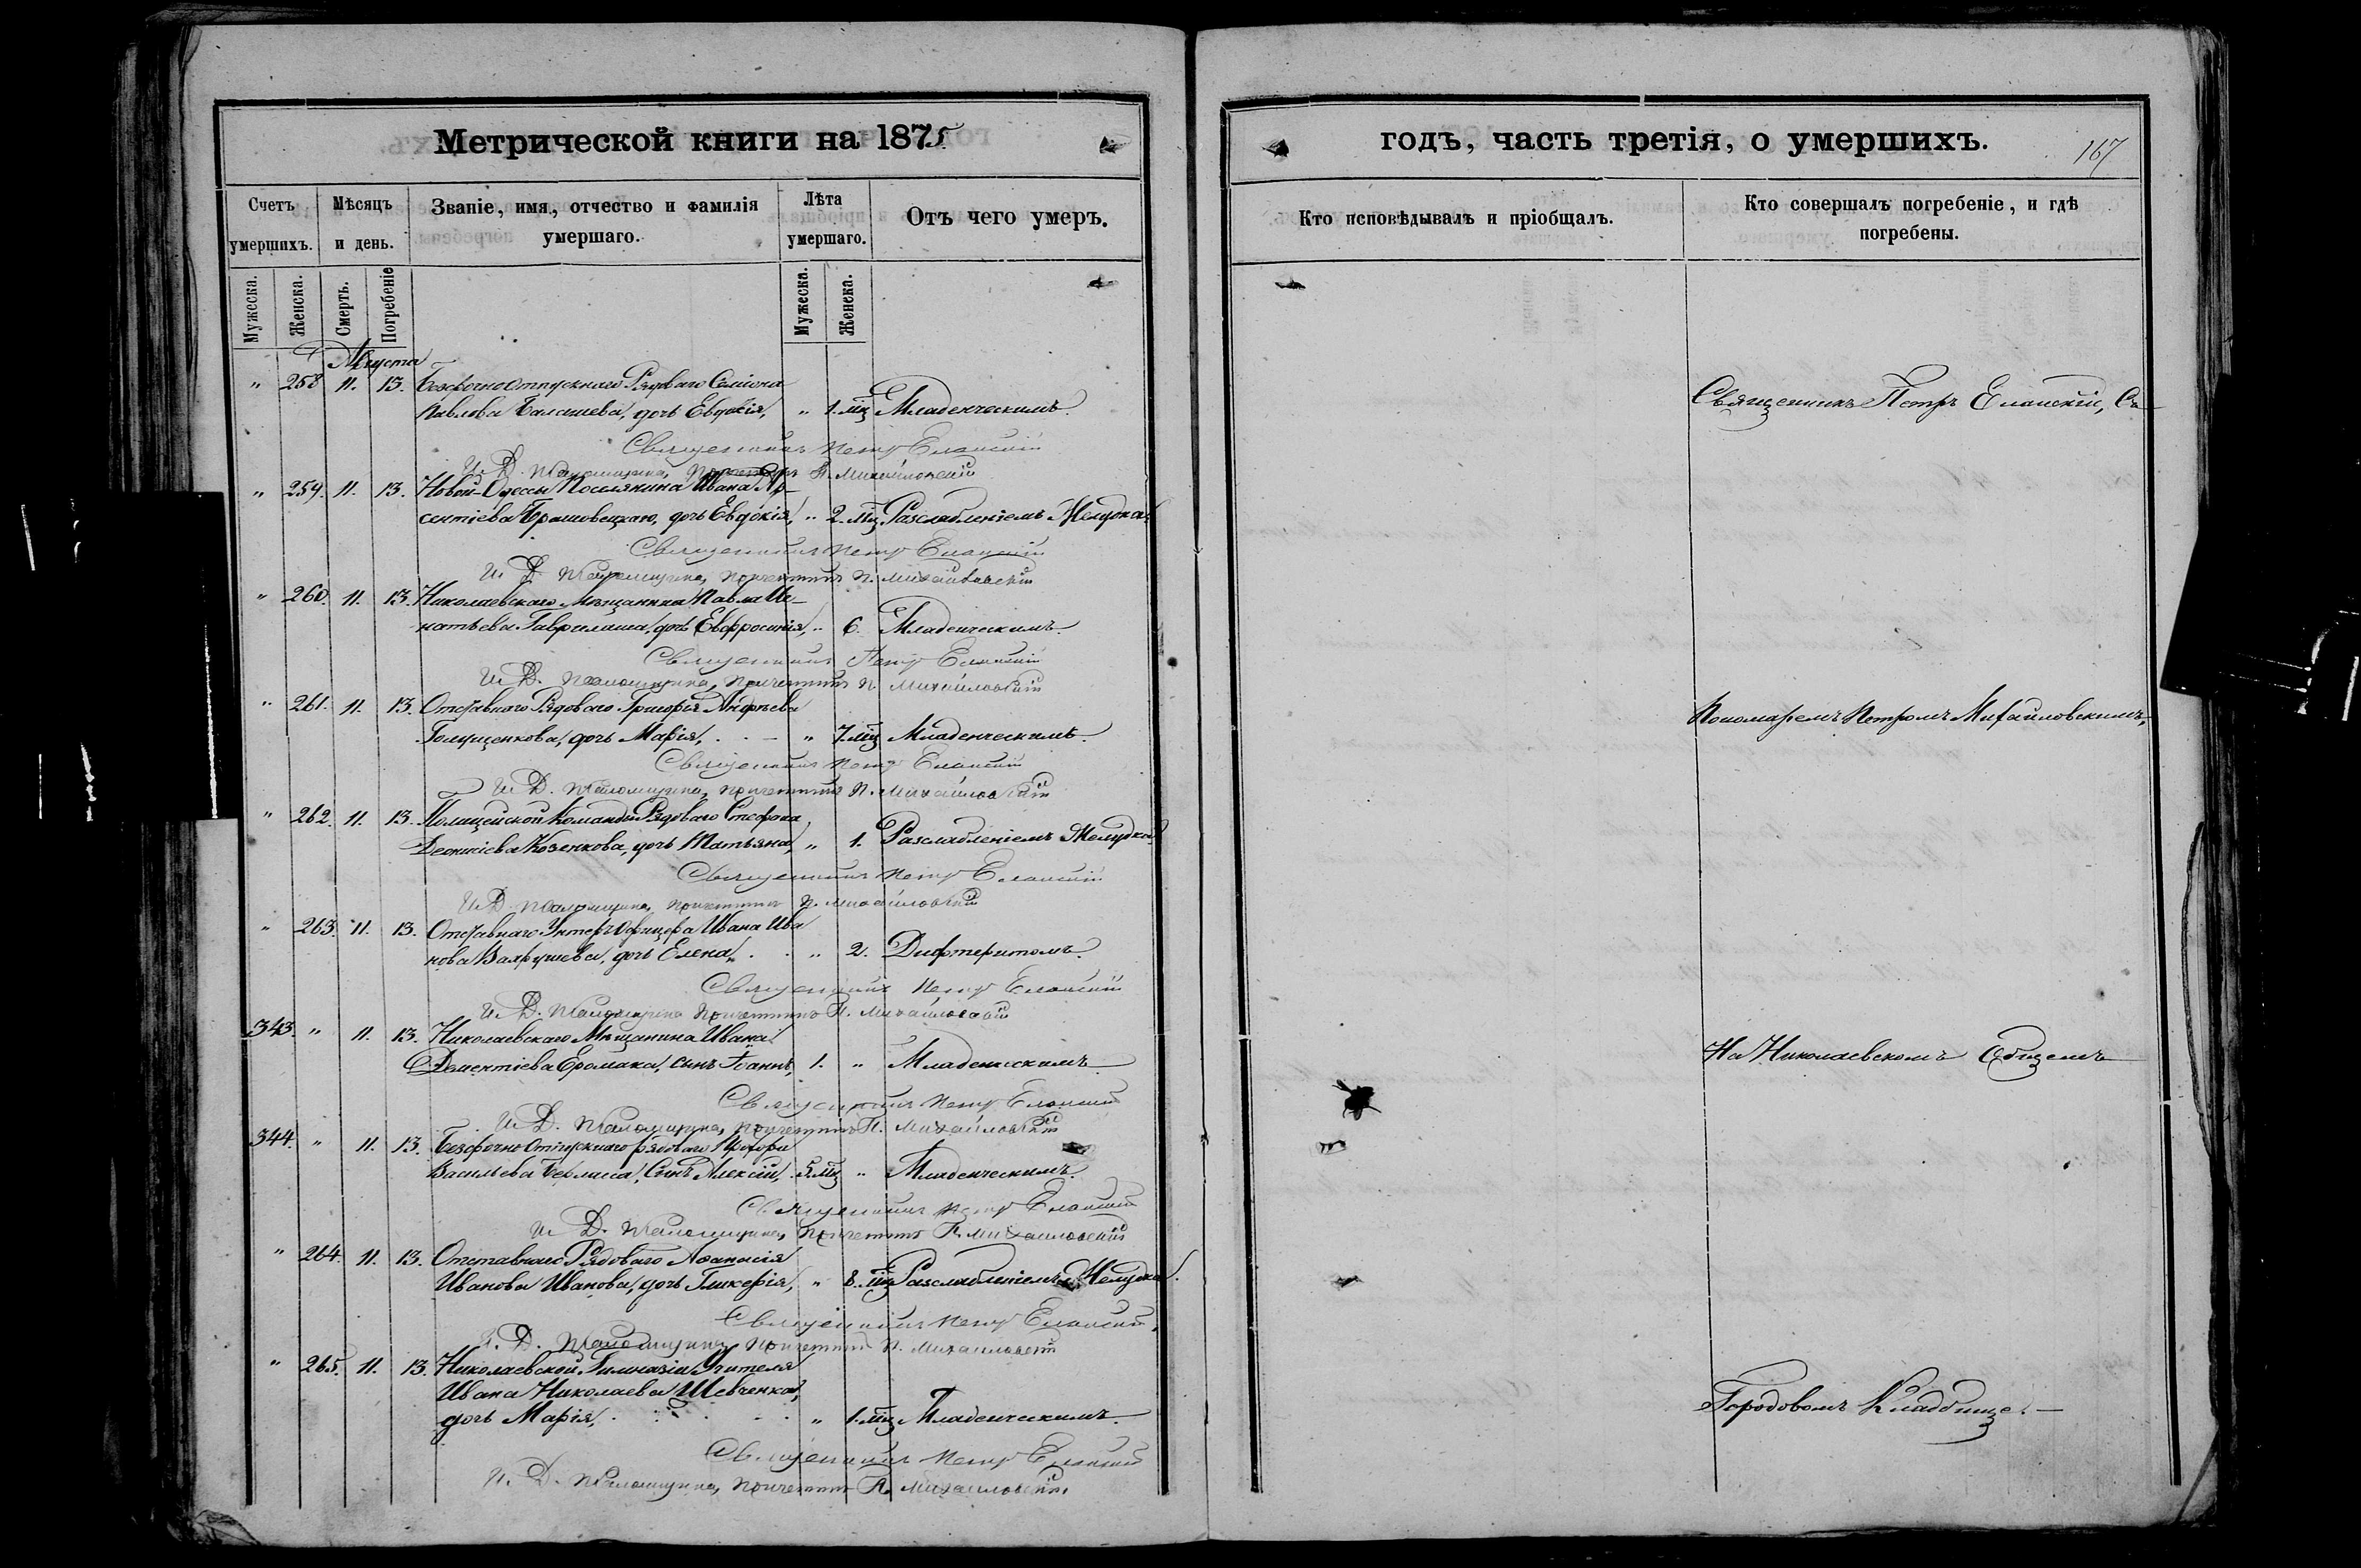 Метрической книги на 1875
годъ, часть третія, о умершихъ.
167
Счетъ умершихъ.
Мѣсяцъ и день.
Званіе, имя, отчество и фамилія умершаго.
Лѣта умершаго.
Отъ чего умеръ.
Кто исповѣдывалъ и пріобщалъ.
Кто совершалъ погребеніе, и гдѣ погребены.
Мужеска.
Женска.
Смерть.
Погребеніе
Мужеска.
Женска.
Августа
" 258 11. 13. Безсрочноотпускнаго Рядоваго Семіона
Павлова Балашева, дочь Евдокія, " 1. мц Младенческимъ.
Священникъ Петръ Еланскій
И. Д. Псаломщика, Причетникъ П. Михайловскій
" 259. 11. 13. Новой-Одессы Поселянина Ивана Ар-
сентіева Брашовецкаго, дочь Евдокія, " 2. мц Разслабленіемъ Желудка
Священникъ Петръ Еланскій
И. Д. Псаломщика, Причетникъ П. Михайловскій
" 260. 11. 13. Николаевскаго Мѣщанина Павла Иг-
натьева Гаврилаша, дочь Евфросинія, " 6. Младенческимъ.
Священникъ Петръ Еланскій
И. Д. Псаломщика, Причетникъ П. Михайловскій
" 261. 11. 13. Отставного Рядоваго Григорія Андреева
Голущенкова, дочь Марія, " 7. мц Младенческимъ.
Священникъ Петръ Еланскій
И. Д. Псаломщика, Причетникъ П. Михайловскій
" 262. 11. 13. Полицейской Команды Рядоваго Стефана
Леонтіева Козенкова, дочь Татьяна, " 1. Разслабленіемъ Желудка
Священникъ Петръ Еланскій
И. Д. Псаломщика, Причетникъ П. Михайловскій
" 263. 11. 13. Отставнаго Унтеръ Офицера Ивана Ива
нова дочь Елена, " 2. Дифтеритомъ.
Священникъ Петръ Еланскій
И. Д. Псаломщика Причетникъ П. Михайловскій
343. " 11. 13. Николаевскаго Мѣщанина Ивана
Дементіева Ермака, сынъ Іоаннъ, 1. " Младенческимъ
Священникъ Петръ Еланскій
И. Д. Псаломщика, Причетникъ П. Михайловскій
344. " 11. 13. Безсрочно Отпускнаго Рядоваго Прохора
Васильева сынъ Алексій, 5. мц " Младенческимъ.
Священникъ Петръ Еланскій
И. Д. Псаломщика, Причетникъ П. Михайловскій
" 264. 11. 13. Отставнаго Рядоваго Аѳанасія
Иванова Иванова, дочь Гликерія, " 8. мц Разслабленіемъ Желудка.
Священникъ Петръ Еланскій
И. Д. Псаломщика, Причетникъ П. Михайловскій
" 265. 11. 13. Николаевской Гимназіи Учителя
Ивана Николаева Шевченка,
дочь Марія, " 1. мц Младенческимъ.
Священникъ Петръ Еланскій
И. Д. Псаломщика, Причетникъ П. Михайловскій
Священникъ Петръ Еланскій, Съ
Пономаремъ Петромъ Михайловскимъ,
На Николаевскомъ Общемъ
Городовомъ Кладбище.